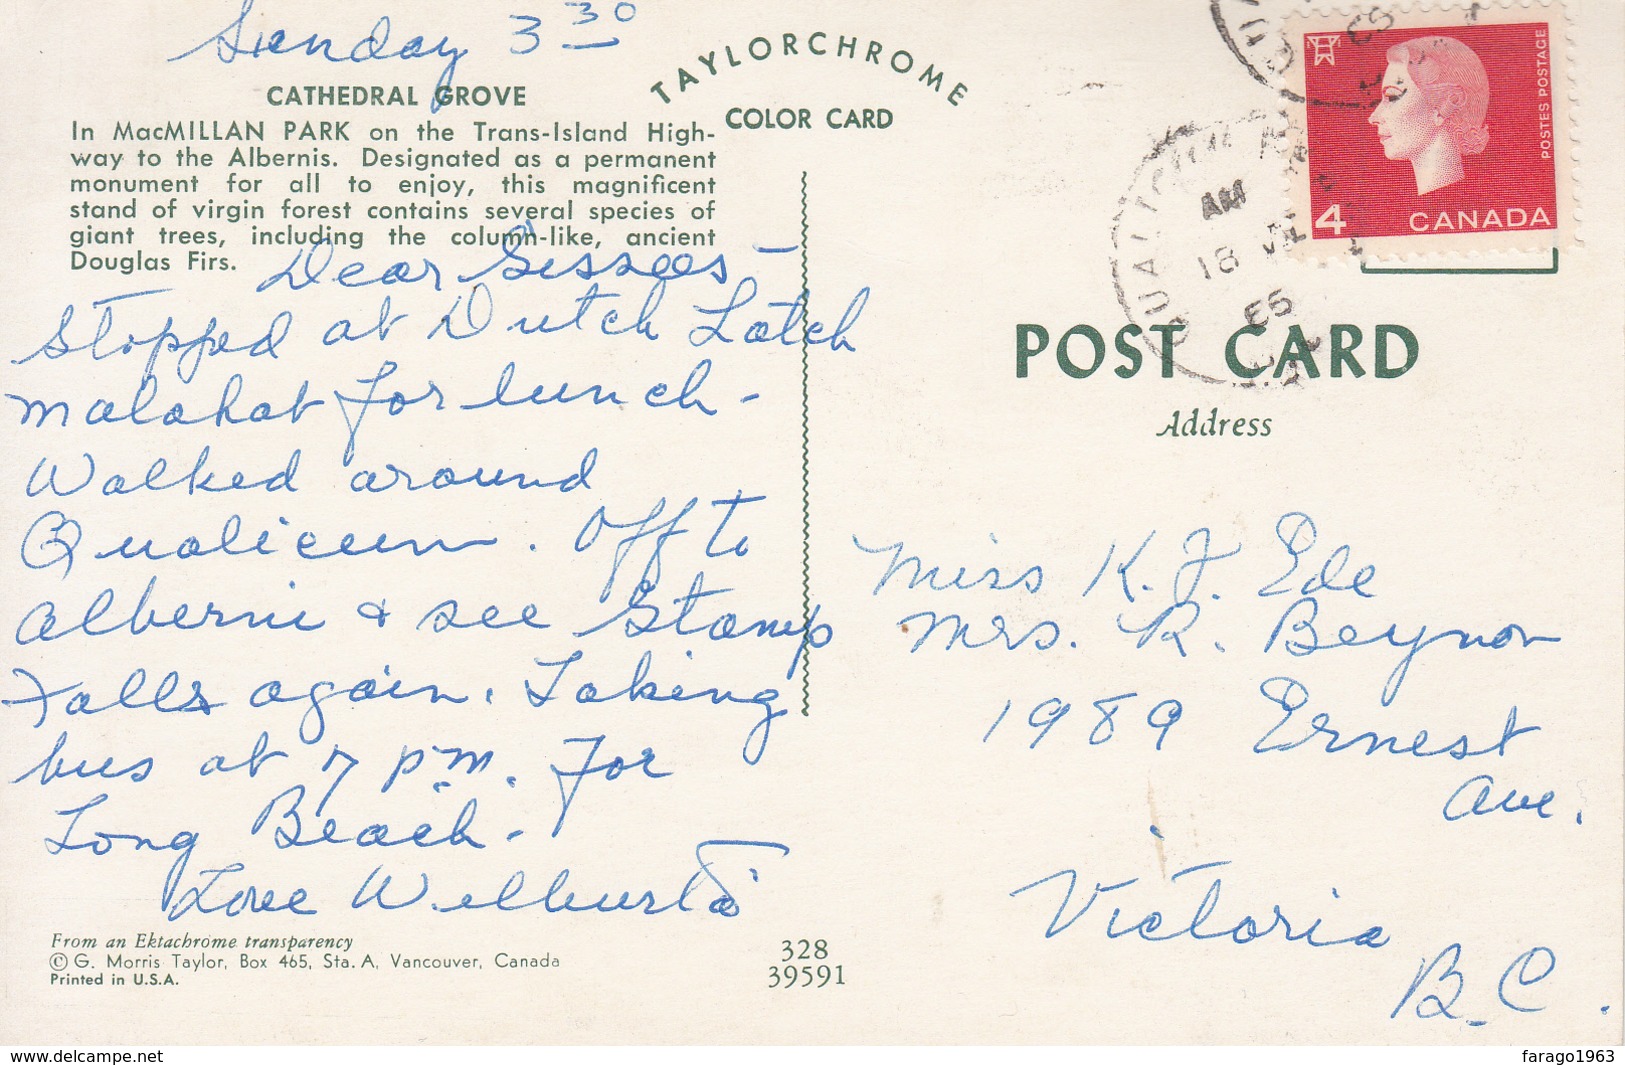 Sunday 3 30
CATHEDRAL GROVE
In MacMILLAN PARK on the Trans-Island High-
way to the Albernis. Designated as a permanent
monument for all to enjoy, this magnificent
stand of virgin forest contains several species of
giant trees, including the column-like, ancient
Douglas Firs.
Dear Sissees -
Stopped at Dutch Latch
Malahat for lunch -
Walked around
Qualicum. Off to
Alberni & see Stamp
Falls again. Taking
bus at 7 p.m. for
Long Beach -
Love Wilburta
From an Ektachrome transparency
© G. Morris Taylor, Box 465, Sta. A, Vancouver, Canada
Printed in U.S.A.
328
39591
TAYLORCHROME
COLOR CARD
AM
18
4 CANADA
POSTES POSTAGE
POST CARD
Address
Miss K. F. Ede
Mrs. R. Beynon
1989 Ernest
Ave.
Victoria
B.C.
www.delcampe.net
farago1963